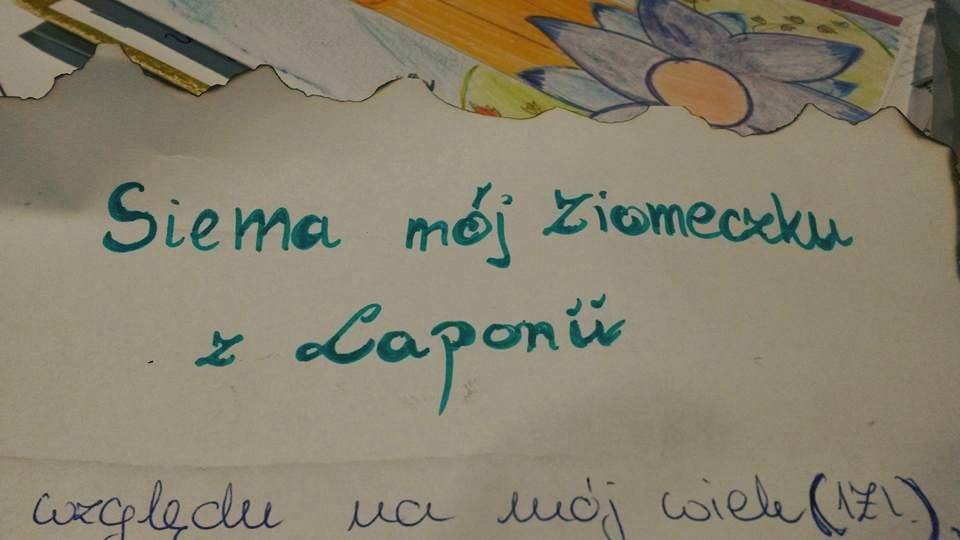 Siema mój Ziomeczku
z Laponii
względu na mój wiek (17l.),